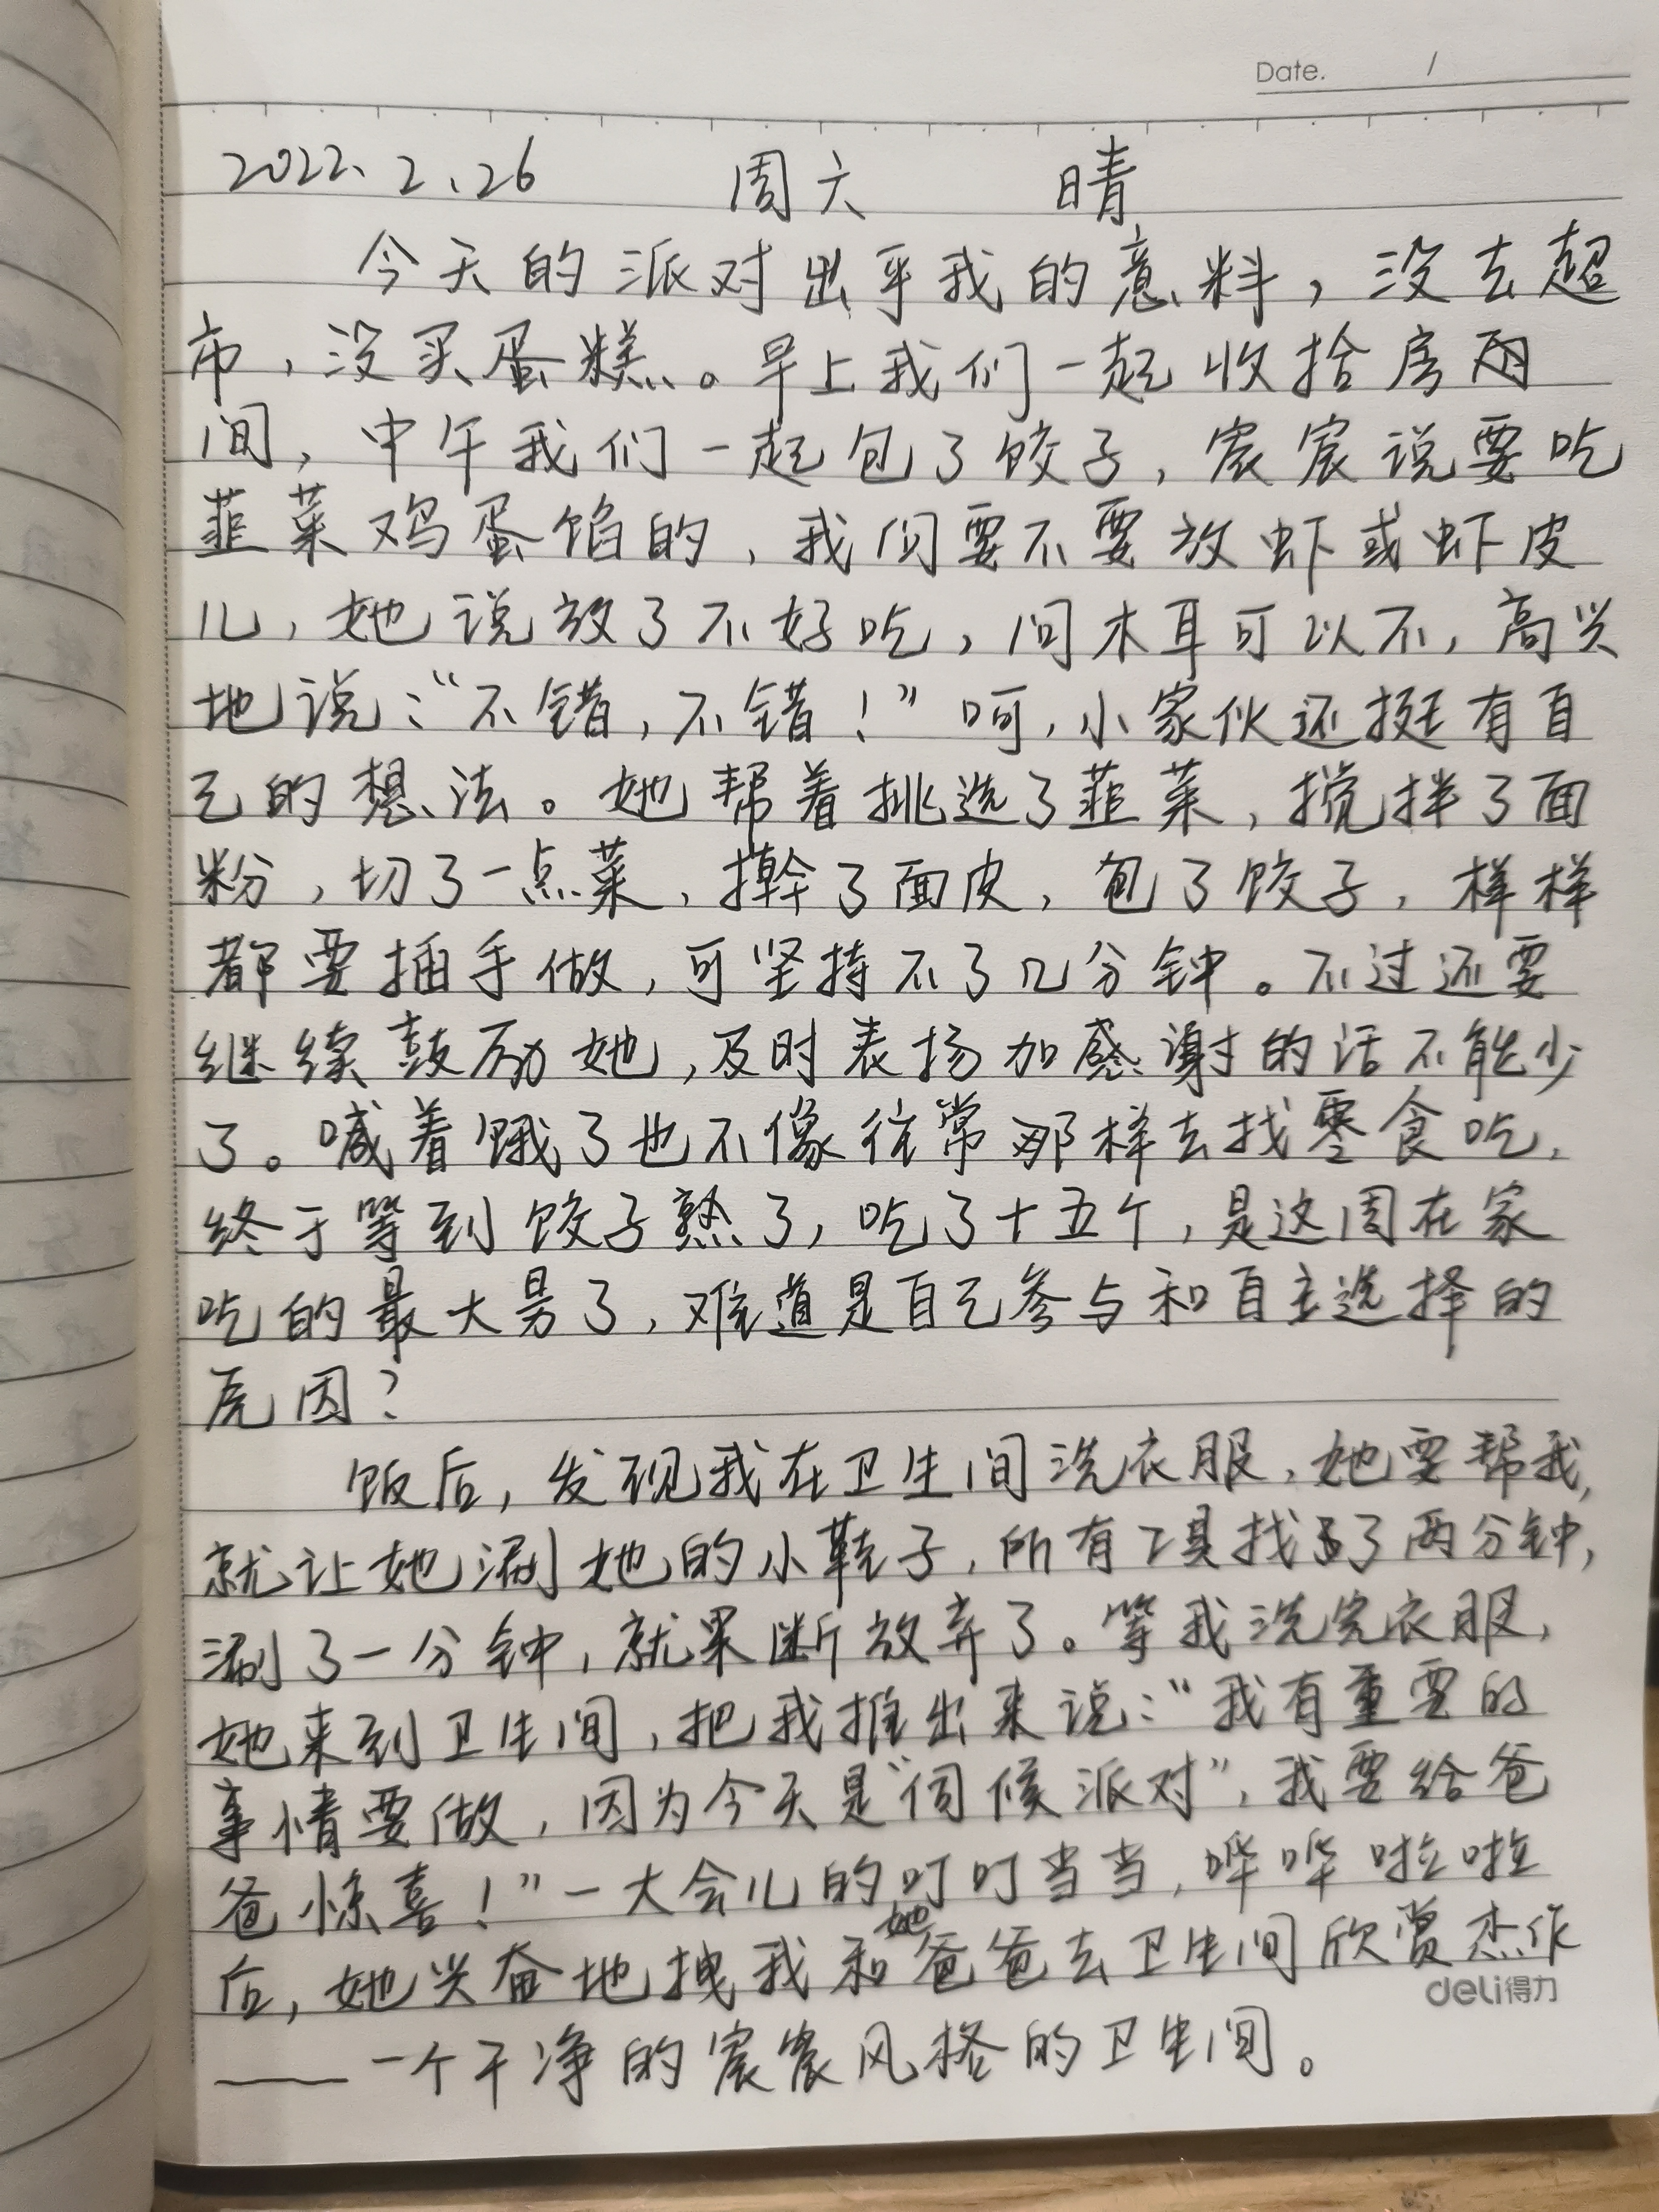 Date. /
2022.2.26 周六 晴
今天的派对出乎我的意料，没去超
市，没买蛋糕。早上我们一起收拾房
间，中午我们一起包了饺子，宸宸说要吃
韭菜鸡蛋馅的，我问要不要放虾或虾皮
儿，她说放了不好吃，问木耳可以不，高兴
地说：“不错，不错！”呵，小家伙还挺有自
己的想法。她帮着挑选了韭菜，搅拌了面
粉，切了一点菜，擀了面皮，包了饺子，样样
都要插手做，可坚持不了几分钟。不过还要
继续鼓励她，及时表扬加感谢的话不能少
了。喊着饿了也不像往常那样去找零食吃，
终于等到饺子熟了，吃了十五个，是这周在家
吃的最大量了，难道是自己参与和自主选择的
原因？
饭后，发现我在卫生间洗衣服，她要帮我，
就让她涮她的小鞋子，所有工具找了两分钟，
涮了一分钟，就果断放弃了。等我洗完衣服，
她来到卫生间，把我推出来说：“我有重要的
事情要做，因为今天是“伺候派对”，我要给爸
爸惊喜！”一大会儿的叮叮当当，哗哗啦啦
后，她兴奋地拽我和她爸爸去卫生间欣赏杰作
——一个干净的宸宸风格的卫生间。
deli得力